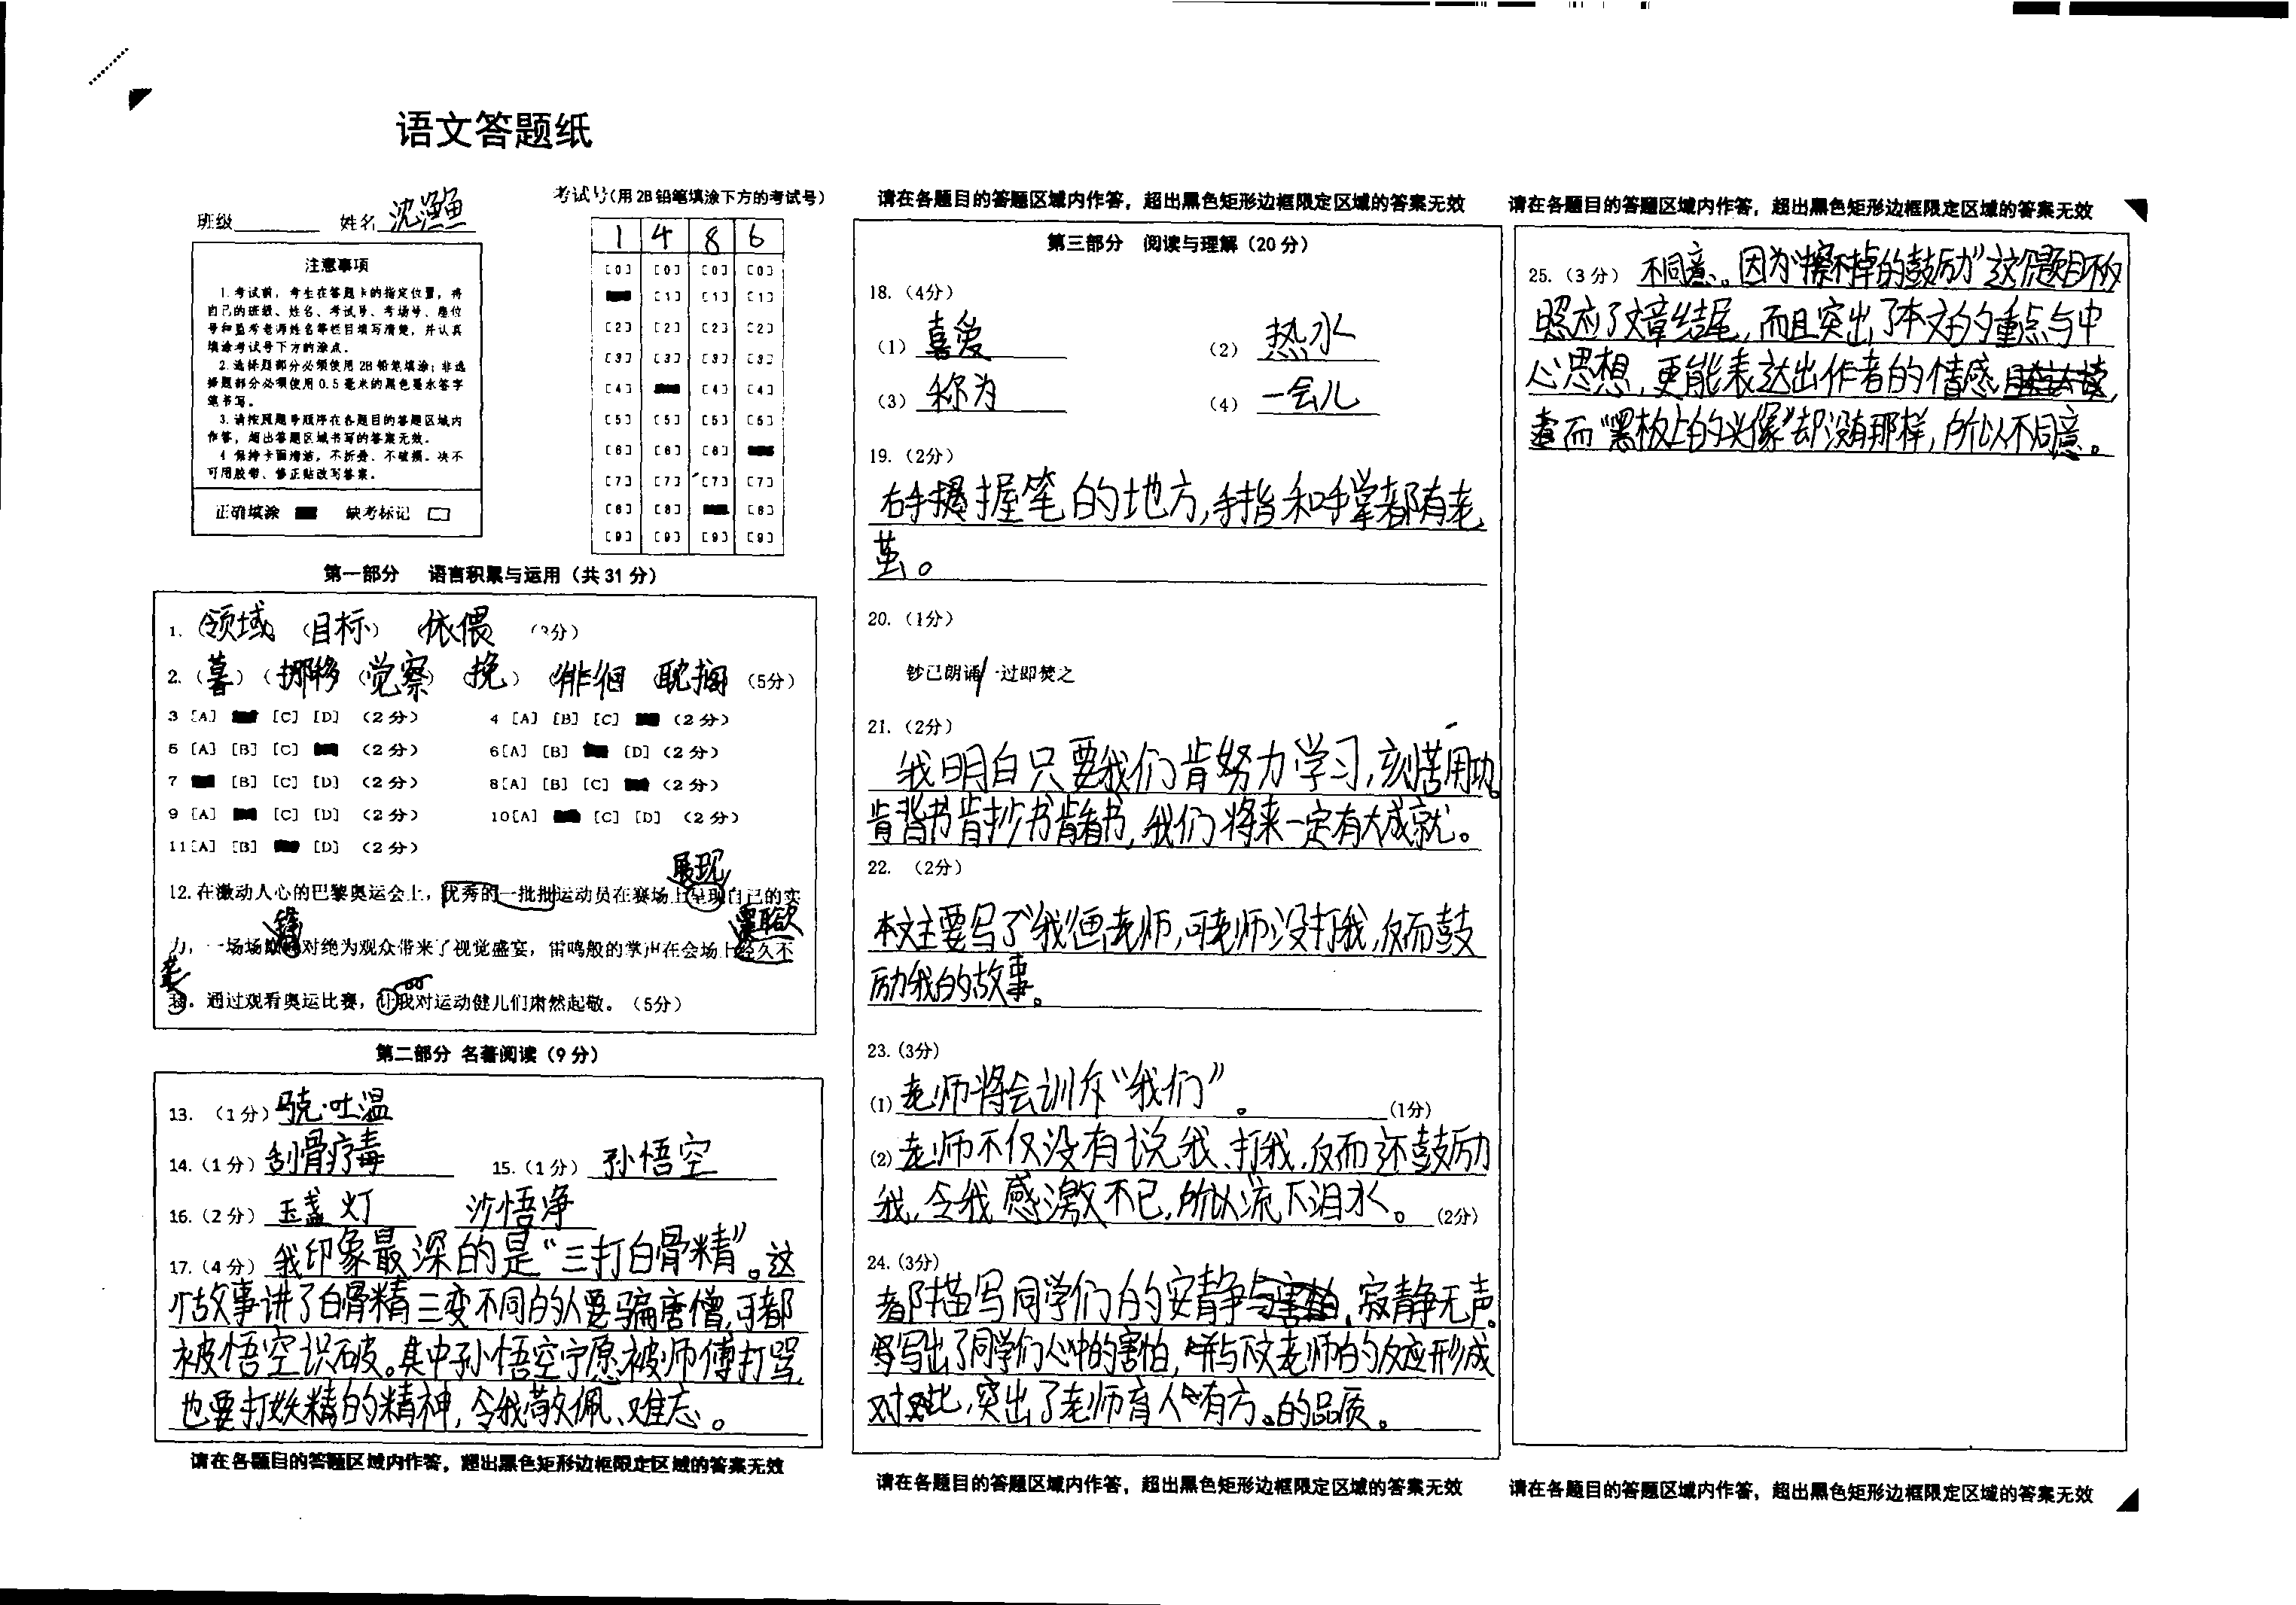 语文答题纸
班级 姓名 沈
考试号(用2B铅笔填涂下方的考试号)
1 4 8 6
注意事项
1.考试前,考生在答题卡的指定位置,将
自己的班级、姓名、考试号、考场号、座位
号和监考老师姓名等栏目填写清楚,并认真
填涂考试号下方的涂点。
2.选择题部分必须使用2B铅笔填涂;非选
择题部分必须使用0.5毫米的黑色墨水签字
笔书写。
3.请按照题号顺序在各题目的答题区域内
作答,超出答题区域书写的答案无效。
4 保持卡面清洁,不折叠、不破损。决不
可用胶带、修正贴改写答案。
正确填涂 缺考标记
[0] [0] [0] [0]
[1] [1] [1]
[2] [2] [2] [2]
[3] [3] [3] [3]
[4] [4] [4]
[5] [5] [5] [5]
[6] [6] [6]
[7] [7] [7] [7]
[8] [8] [8]
[9] [9] [9] [9]
第一部分 语言积累与运用(共31分)
1. (领域) (目标) (依偎) (3分)
2. (暮) (挪移) (觉察) (挽) (徘徊) (耽搁) (5分)
3 [A] [C] [D] (2分) 4 [A] [B] [C] (2分)
5 [A] [B] [C] (2分) 6[A] [B] [D] (2分)
7 [B] [C] [D] (2分) 8[A] [B] [C] (2分)
9 [A] [C] [D] (2分) 10[A] [C] [D] (2分)
11[A] [B] [D] (2分)
展现
12.在激动人心的巴黎奥运会上,优秀的一批批运动员在赛场上呈现自己的实
力,一场场对绝为观众带来了视觉盛宴,雷鸣般的掌声在会场上经久不
。通过观看奥运比赛,让我对运动健儿们肃然起敬。(5分)
第二部分 名著阅读(9分)
13. (1分) 马克·吐温
14. (1分) 刮骨疗毒 15. (1分) 孙悟空
16. (2分) 玉盏灯 沙悟净
17. (4分) 我印象最深的是“三打白骨精”。这
个故事讲了白骨精三变不同的人要骗唐僧,可都
被悟空识破。其中孙悟空宁愿被师傅打骂,
也要打妖精的精神,令我敬佩、难忘。
请在各题目的答题区域内作答,超出黑色矩形边框限定区域的答案无效
请在各题目的答题区域内作答,超出黑色矩形边框限定区域的答案无效
第三部分 阅读与理解(20分)
18. (4分)
(1) 喜爱 (2) 热水
(3) 称为 (4) 一会儿
19. (2分)
右手握笔的地方,手指和手掌都有老
茧。
20. (1分)
钞已朗诵/一过即焚之
21. (2分)
我明白只要我们肯努力学习,刻苦用功,
肯背书肯抄书肯看书,我们将来一定有大成就。
22. (2分)
本文主要写了“我”画老师,可老师没打我,反而鼓
励我的故事。
23. (3分)
(1) 老师将会训斥“我们”。 (1分)
(2) 老师不仅没有说我、打我,反而还鼓励
我,令我感激不已,所以流下泪水。 (2分)
24. (3分)
都描写同学们的安静、寂静无声。
写出了同学们心中的害怕,并与下文老师的反应形成
对比,突出了老师育人有方的品质。
请在各题目的答题区域内作答,超出黑色矩形边框限定区域的答案无效
请在各题目的答题区域内作答,超出黑色矩形边框限定区域的答案无效
25. (3分) 不同意。因为“擦不掉的鼓励”这个题目不仅
照应了文章结尾,而且突出了本文的重点与中
心思想,更能表达出作者的情感,
而“黑板上的头像”却没有那样,所以不同意。
请在各题目的答题区域内作答,超出黑色矩形边框限定区域的答案无效